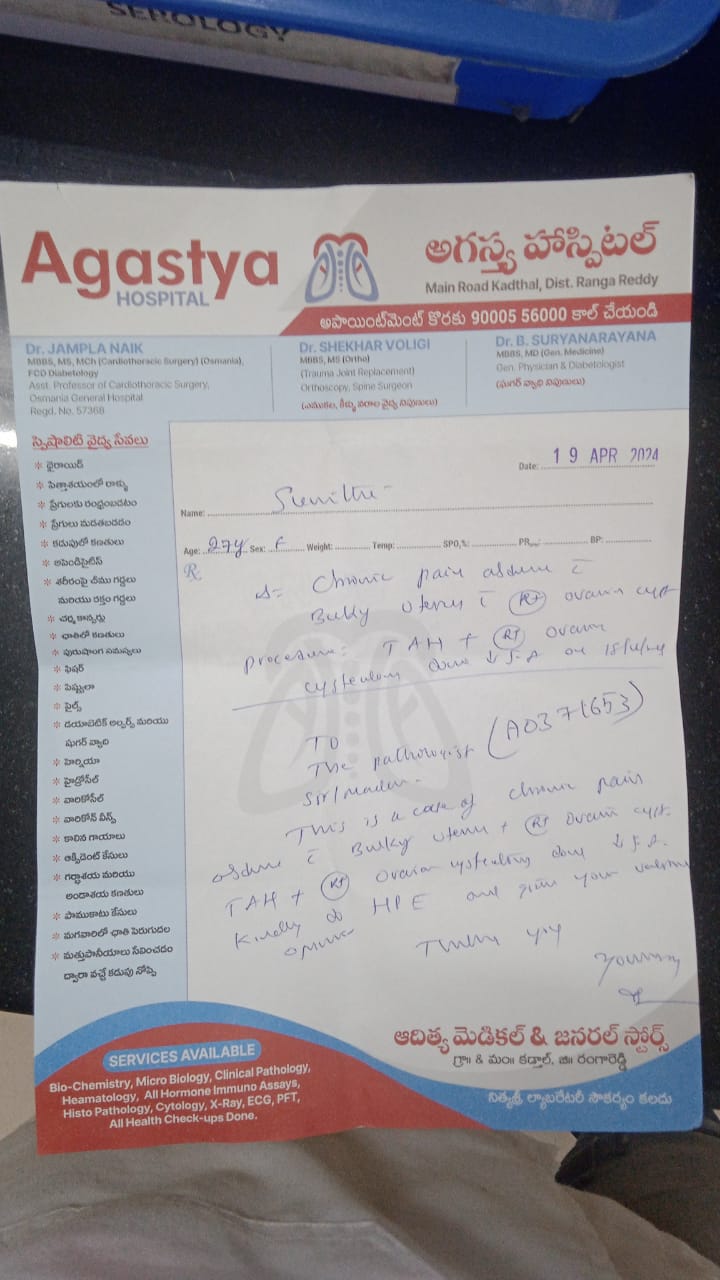 SEROLOGY
Agastya
HOSPITAL
అగస్త్య హాస్పిటల్
Main Road Kadthal, Dist. Ranga Reddy
అపాయింట్‌మెంట్ కొరకు 90005 56000 కాల్ చేయండి
Dr. JAMPLA NAIK
MBBS, MS, MCh (Cardiothoracic Surgery) (Osmania),
FCD Diabetology
Asst. Professor of Cardiothoracic Surgery,
Osmania General Hospital
Regd. No. 57368
Dr. SHEKHAR VOLIGI
MBBS, MS (Ortho)
(Trauma Joint Replacement)
Orthoscopy, Spine Surgeon
(ఎముకల, కీళ్ళు నరాల వైద్య నిపుణులు)
Dr. B. SURYANARAYANA
MBBS, MD (Gen. Medicine)
Gen. Physician & Diabetologist
(షుగర్ వ్యాధి నిపుణులు)
స్పెషాలిటి వైద్య సేవలు
* థైరాయిడ్
* పిత్తాశయంలో రాళ్ళు
* ప్రేగులకు రంధ్రంబడటం
* ప్రేగులు మడతబడడం
* కడుపులో కణతులు
* అపెండిసైటిస్
* శరీరంపై చీము గడ్డలు
మరియు రక్తం గడ్డలు
* చర్మ కాన్సర్లు
* ఛాతిలో కణతులు
* పురుషాంగ సమస్యలు
* ఫిషర్
* పిస్టులా
* పైల్స్
* డయాబెటిక్ అల్సర్స్ మరియు
షుగర్ వ్యాధి
* హెర్నియా
* హైడ్రోసిల్
* వారికోసిల్
* వారికోస్ వీన్స్
* కాలిన గాయాలు
* ఆక్సిడెంట్ కేసులు
* గర్భాశయ మరియు
అండాశయ కణతులు
* పాముకాటు కేసులు
* మగవారిలో ఛాతి పెరుగుదల
* మత్తుపానీయాలు సేవించడం
ద్వారా వచ్చే కడుపు నొప్పి
Date: 19 APR 2024
Name:
Age: 27y Sex: F Weight: Temp: SPO₂%: PR: BP:
Rx
Chronic pain abdomen c̄
Bulky uterus c̄ Rt ovarian cyst
procedure: TAH + Rt ovarian
cystectomy done ↓ S.A on
TO
The pathologist (A0371653)
Sir/Madam.
This is a case of chronic pain
abdomen c̄ Bulky uterus + Rt ovarian cyst.
TAH + Rt ovarian cystectomy done ↓ S.A.
Kindly do HPE and give your valuable
opinion
Thank you
SERVICES AVAILABLE
Bio-Chemistry, Micro Biology, Clinical Pathology,
Heamatology, All Hormone Immuno Assays,
Histo Pathology, Cytology, X-Ray, ECG, PFT,
All Health Check-ups Done.
ఆదిత్య మెడికల్ & జనరల్ స్టోర్స్
గ్రా॥ & మం॥ కడ్తాల్, జి॥ రంగారెడ్డి
నిత్యశ్రీ ల్యాబరేటరీ సౌకర్యం కలదు